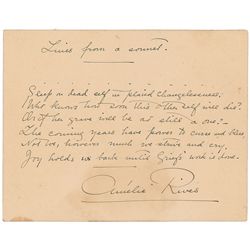 Lines from a sonnet.
Grief on dead self in plaid changelessness:
Who knows how soon this other self will die?
Or if her grave will be as still a one?—
The coming years have power to curse and bless
Not we, however much we strive and cry.
Joy holds us back until Grief's work is done.
Amélie Rives